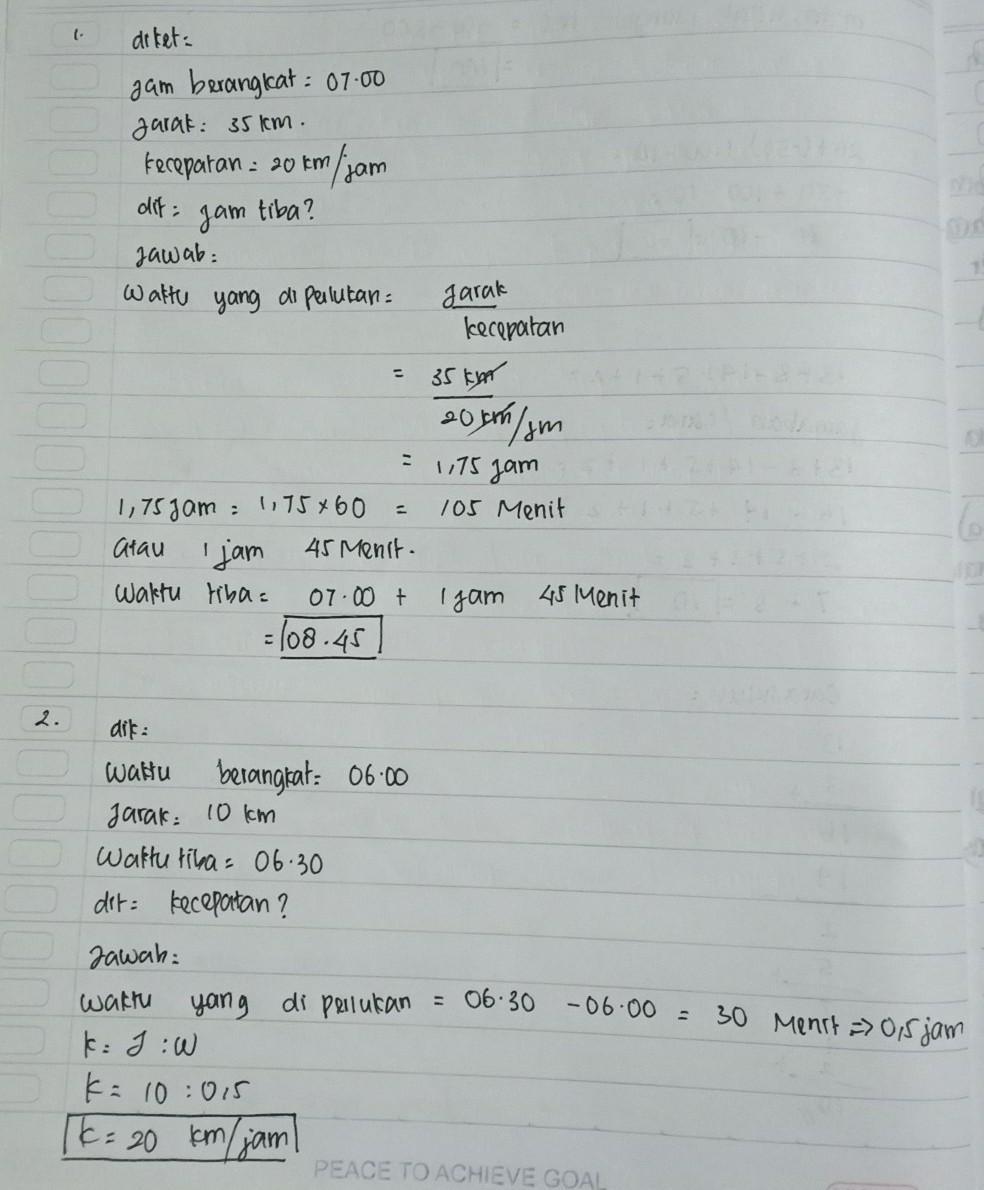 1. diket:
jam berangkat: 07.00
Jarak: 35 km.
kecepatan = 20 km/jam
dit: jam tiba?
Jawab:
Waktu yang di perlukan = Jarak
kecepatan
= 35 km
20 km/jm
= 1,75 jam
1,75 jam = 1,75 × 60 = 105 Menit
atau 1 jam 45 Menit.
Waktu tiba = 07.00 + 1 jam 45 Menit
= 08.45
2. dik:
Waktu berangkat= 06.00
Jarak= 10 km
Waktu tiba= 06.30
dit= kecepatan?
Jawab:
waktu yang di perlukan = 06.30 - 06.00 = 30 Menit => 0,5 jam
k= J : W
k= 10 : 0,5
k= 20 km/jam
PEACE TO ACHIEVE GOAL